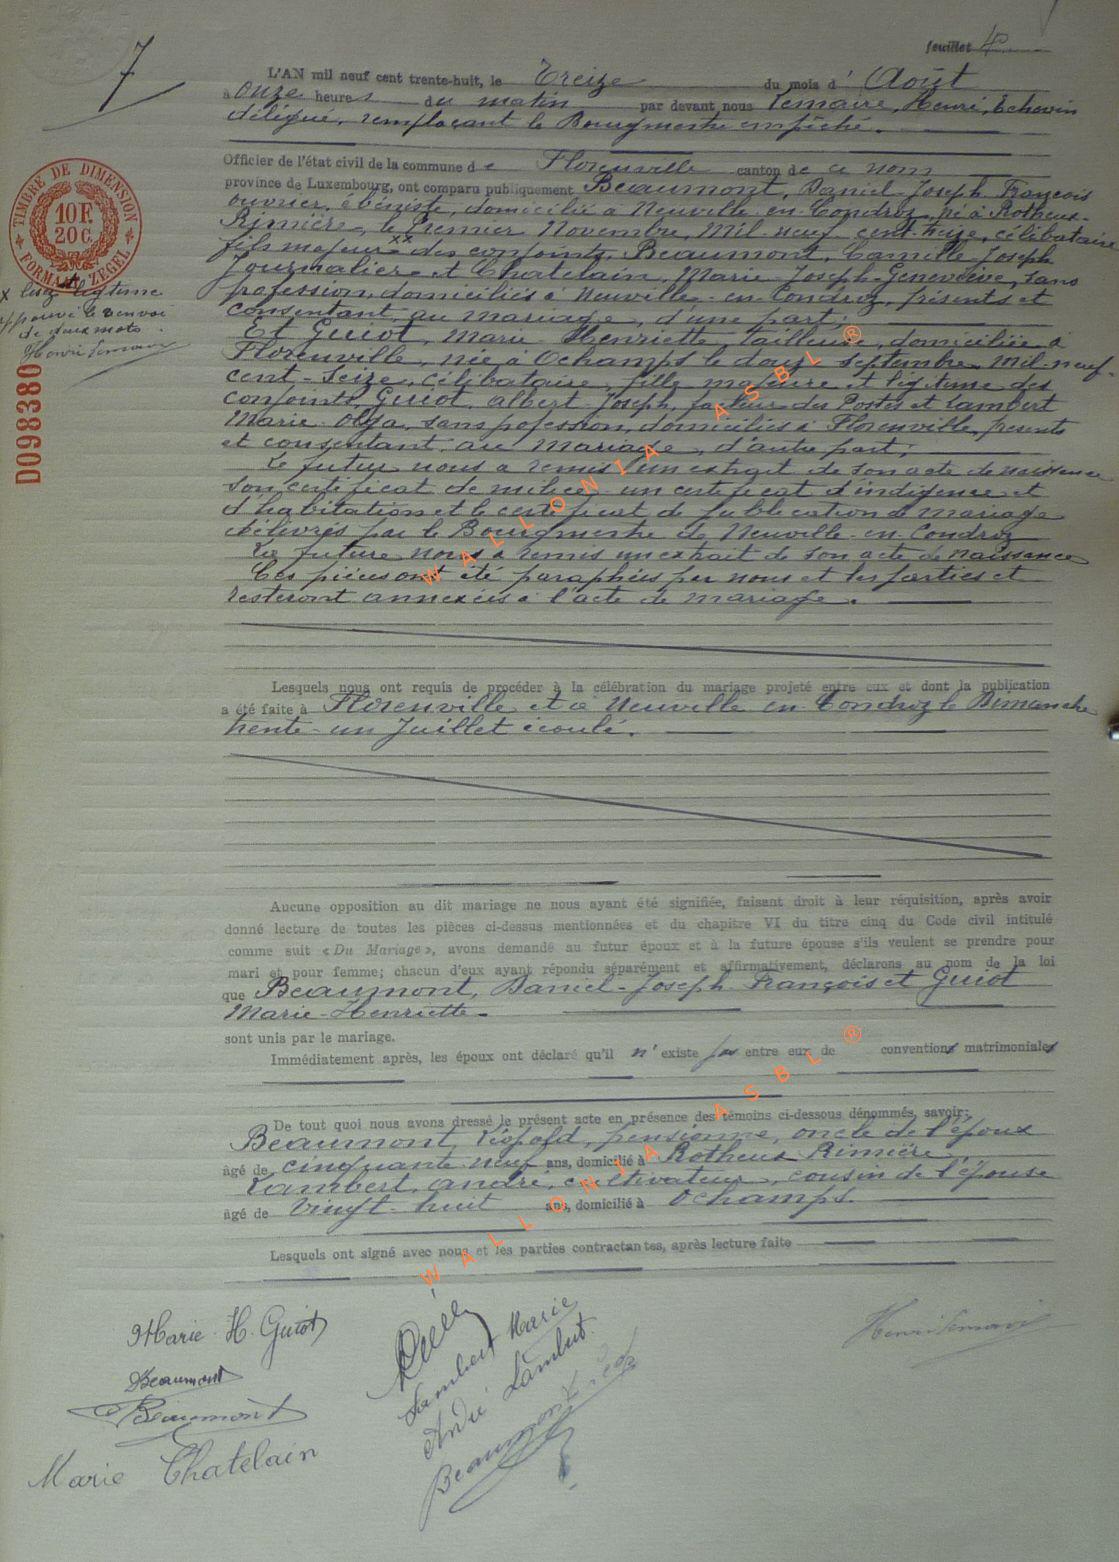 feuillet 4
7
L'AN mil neuf cent trente-huit, le Treize du mois d' Août
à onze heures du matin par devant nous Lemaire, Henri, Echevin
délégué, remplaçant le Bourgmestre empêché.
Officier de l'état civil de la commune de Florenville canton de ce nom
province de Luxembourg, ont comparu publiquement Beaumont, Daniel-Joseph-François
ouvrier ébéniste, domicilié à Neuville-en-Condroz, né à Rotheux-
Rimière, le Premier Novembre, Mil neuf cent-treize, célibataire
fils majeur xx des conjoints Beaumont, Camille-Joseph
Journalier et Chatelain, Marie-Joseph-Geneviève, sans
profession, domiciliés à Neuville-en-Condroz, présents et
consentant au mariage, d'une part;
Et Guiot, Marie-Henriette, tailleuse, domiciliée à
Florenville, née à Ochamps le douze septembre Mil-neuf-
cent-Seize, célibataire, fille majeure et légitime des
conjoints Guiot, Albert-Joseph, facteur des Postes et Lambert
Marie-Olga, sans profession, domiciliés à Florenville, présents
et consentant au mariage, d'autre part;
Le futur nous a remis un extrait de son acte de naissance
son certificat de milice un certificat d'indigence et
d'habitation et le certificat de publication de mariage
délivrés par le Bourgmestre de Neuville-en-Condroz
La future nous a remis un extrait de son acte de naissance
Ces pièces ont été paraphées par nous et les parties et
resteront annexées à l'acte de mariage.
TIMBRE DE DIMENSION
10 F.
20 C.
FORMAAT ZEGEL
x lisez légitime
approuvé le renvoi
de deux mots
Henri Lemaire
D098380
Lesquels nous ont requis de procéder à la célébration du mariage projeté entre eux et dont la publication
a été faite à Florenville et à Neuville-en-Condroz le Dimanche
trente-un Juillet écoulé.
Aucune opposition au dit mariage ne nous ayant été signifiée, faisant droit à leur réquisition, après avoir
donné lecture de toutes les pièces ci-dessus mentionnées et du chapitre VI du titre cinq du Code civil intitulé
comme suit « Du Mariage », avons demandé au futur époux et à la future épouse s'ils veulent se prendre pour
mari et pour femme; chacun d'eux ayant répondu séparément et affirmativement, déclarons au nom de la loi
que Beaumont, Daniel-Joseph-François et Guiot
Marie-Henriette
sont unis par le mariage.
Immédiatement après, les époux ont déclaré qu'il n'existe pas entre eux de conventions matrimoniales
De tout quoi nous avons dressé le présent acte en présence des témoins ci-dessous dénommés, savoir:
Beaumont, Léopold, pensionné, oncle de l'époux
âgé de cinquante neuf ans, domicilié à Rotheux Rimière,
Lambert, André, cultivateur, cousin de l'épouse
âgé de vingt-huit ans, domicilié à Ochamps.
Lesquels ont signé avec nous et les parties contractantes, après lecture faite
WALLONIA ASBL ®
WALLONIA ASBL ®
Marie H. Guiot
DBeaumont
Beaumont
Marie Chatelain
Lambert Marie
André Lambert
Beaumont
Henri Lemaire